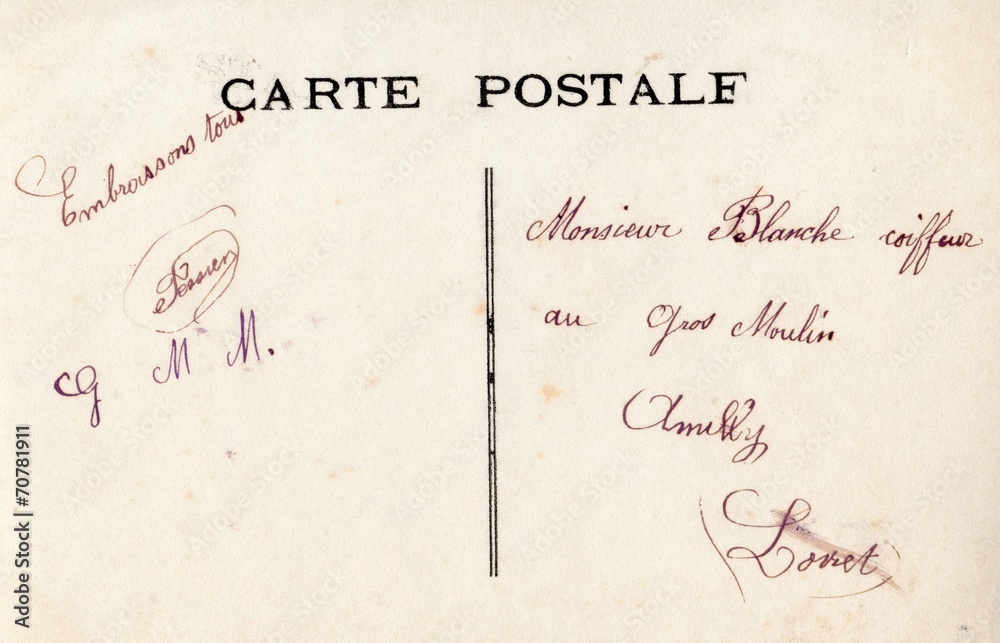 CARTE POSTALE
Embrassons tous
G M M.
Monsieur Blanche coiffeur
au Gros Moulin
Amilly
Loiret
Adobe Stock | #70781911